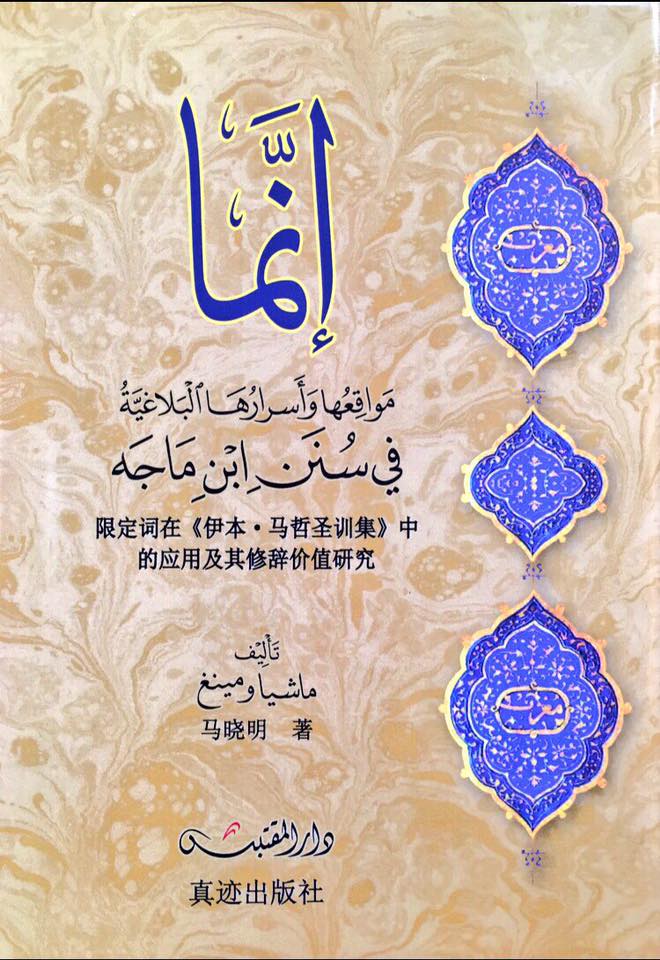 إنَّما
مَواقِعُها وَأَسرارُهَا ٱلْبَلاغِيَّةُ
فِي سُنَنِ ابْنِ مَاجَه
限定词在《伊本·马哲圣训集》中
的应用及其修辞价值研究
تَأْلِيْف
ماشياو مينغ
马晓明 著
دار المقتبس
真迹出版社